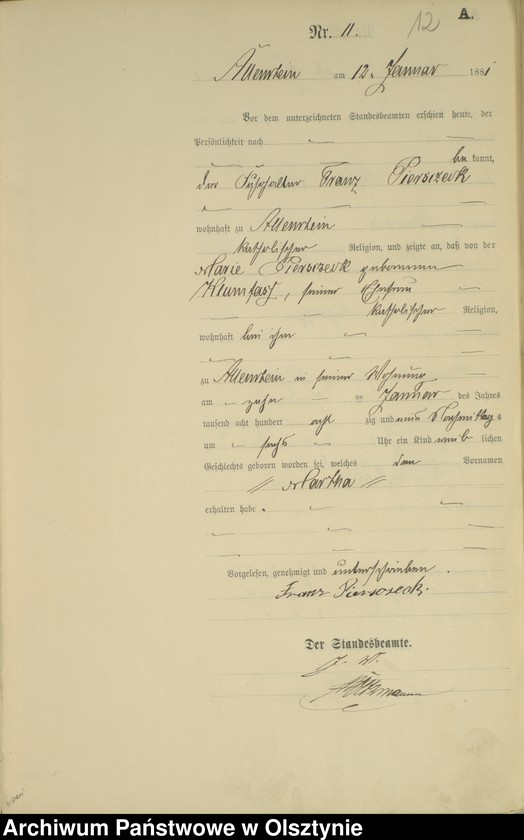 A.
12
Nr. 11.
Allenstein am 12. Januar 1881
Vor dem unterzeichneten Standesbeamten erschien heute, der
Persönlichkeit nach
be kannt,
der Franz Piersczeck
wohnhaft zu Allenstein
katholischer Religion, und zeigte an, daß von der
Marie Piersczeck geborenen
seiner Ehefrau
katholischer Religion,
wohnhaft bei ihm
zu Allenstein in seiner Wohnung
am zehn ten Januar des Jahres
tausend acht hundert acht zig und eins Nachmittags
um sechs Uhr ein Kind weib lichen
Geschlechts geboren worden sei, welches den Vornamen
Martha
erhalten habe.
Vorgelesen, genehmigt und unterschrieben.
Franz Piersczeck.
Der Standesbeamte.
J. V.
Archiwum Państwowe w Olsztynie